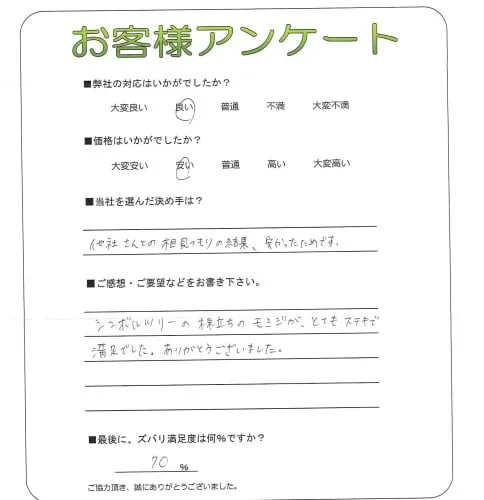 お客様アンケート
■弊社の対応はいかがでしたか？
大変良い 良い 普通 不満 大変不満
■価格はいかがでしたか？
大変安い 安い 普通 高い 大変高い
■当社を選んだ決め手は？
他社さんとの相見つもりの結果、安かったためです.
■ご感想・ご要望などをお書き下さい。
シンボルツリーの株立ちのモミジが、とてもステキで
満足でした。ありがとうございました。
■最後に、ズバリ満足度は何%ですか？
70 %
ご協力頂き、誠にありがとうございました。